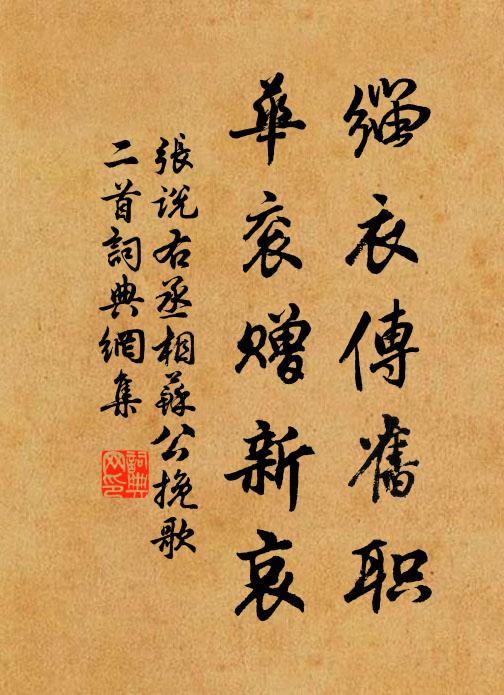 缁衣傳舊职
華衮贈新哀
張說右丞相蘇公挽歌
二首詞典網集
詞典网印